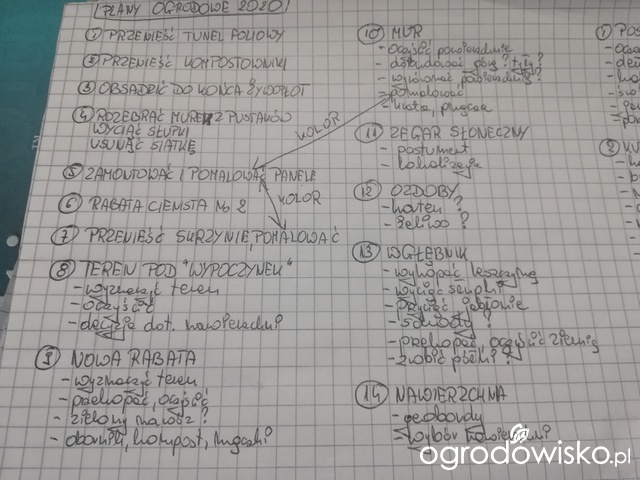 PLANY OGRODOWE 2020
1 PRZENIEŚĆ TUNEL FOLIOWY
2 PRZENIEŚĆ KOMPOSTOWNIKI
3 OBSADZIĆ DO KOŃCA ŻYWOPŁOT
4 ROZEBRAĆ MUREK Z PUSTAKÓW
WYCIĄĆ SŁUPKI
USUNĄĆ SIATKĘ
5 ZAMONTOWAĆ I POMALOWAĆ PANELE
KOLOR
KOLOR
6 RABATA CIENISTA No 2
7 PRZENIEŚĆ SKRZYNIĘ, POMALOWAĆ
8 TEREN POD "WYPOCZYNEK"
- wyznaczyć teren
- oczyścić
- decyzja dot. nawierzchni
9 NOWA RABATA
- wyznaczyć teren
- przekopać, oczyścić
- zielony nawóz?
- obornik, kompost,
10 MUR
- oczyścić powierzchnię
- dobudować górę? tyły?
- wyrównać powierzchnię?
- pomalować
- krata, pnącza
11 ZEGAR SŁONECZNY
- postument
- lokalizacja
12 OZDOBY
- kamień?
- żeliwo?
13 WGŁĘBNIK
- wykopać leszczynę
- wyciąć sumaki
- przyciąć jabłonie
- schody?
- przekopać, oczyścić ziemię
- zrobić półki?
14 NAWIERZCHNIA
- geobordy
- wybór nawierzchni
1
2
ogrodowisko.pl